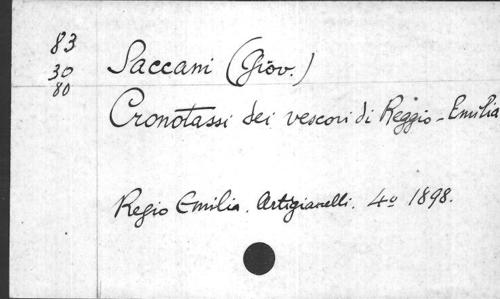 83
30
80
Saccani (Giov.)
Cronotassi dei vescovi di Reggio-Emilia
Regio Emilia. Artigianelli. 4º 1898.